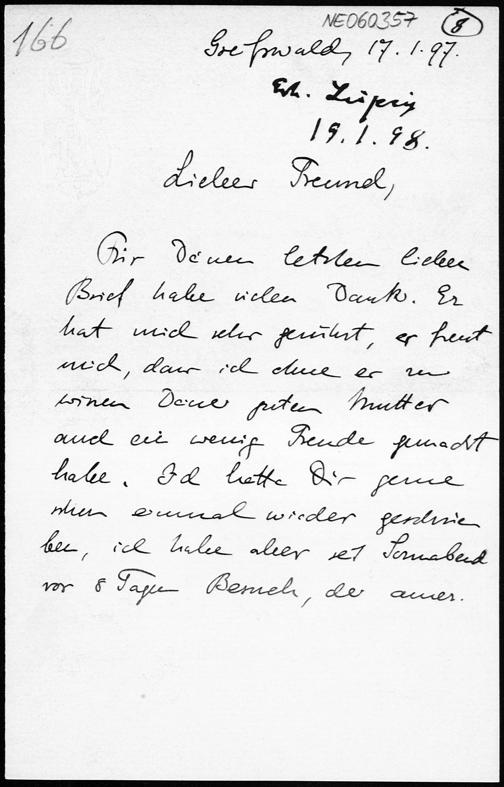 NE060357 8
166
Greifswald, 17.1.97.
Erh. Leipzig
19.1.98.
Lieber Freund,
Für Deinen letzten lieben
Brief habe vielen Dank. Er
hat mich sehr gerührt, er freut
mich, dass ich ohne es zu
wissen Deiner guten Mutter
auch ein wenig Freude gemacht
habe. Ich hätte Dir gerne
schon einmal wieder geschrie
ben, ich habe aber seit Sonnabend
vor 8 Tagen Besuch, der amer.